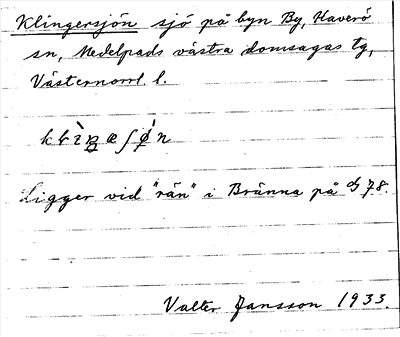 Klingersjön sjö på byn By, Haverö
sn, Medelpads västra domsagas tg,
Västernorrl. l.
Ligger vid "rån" i Bränna på 78.
Valter Jansson 1933.